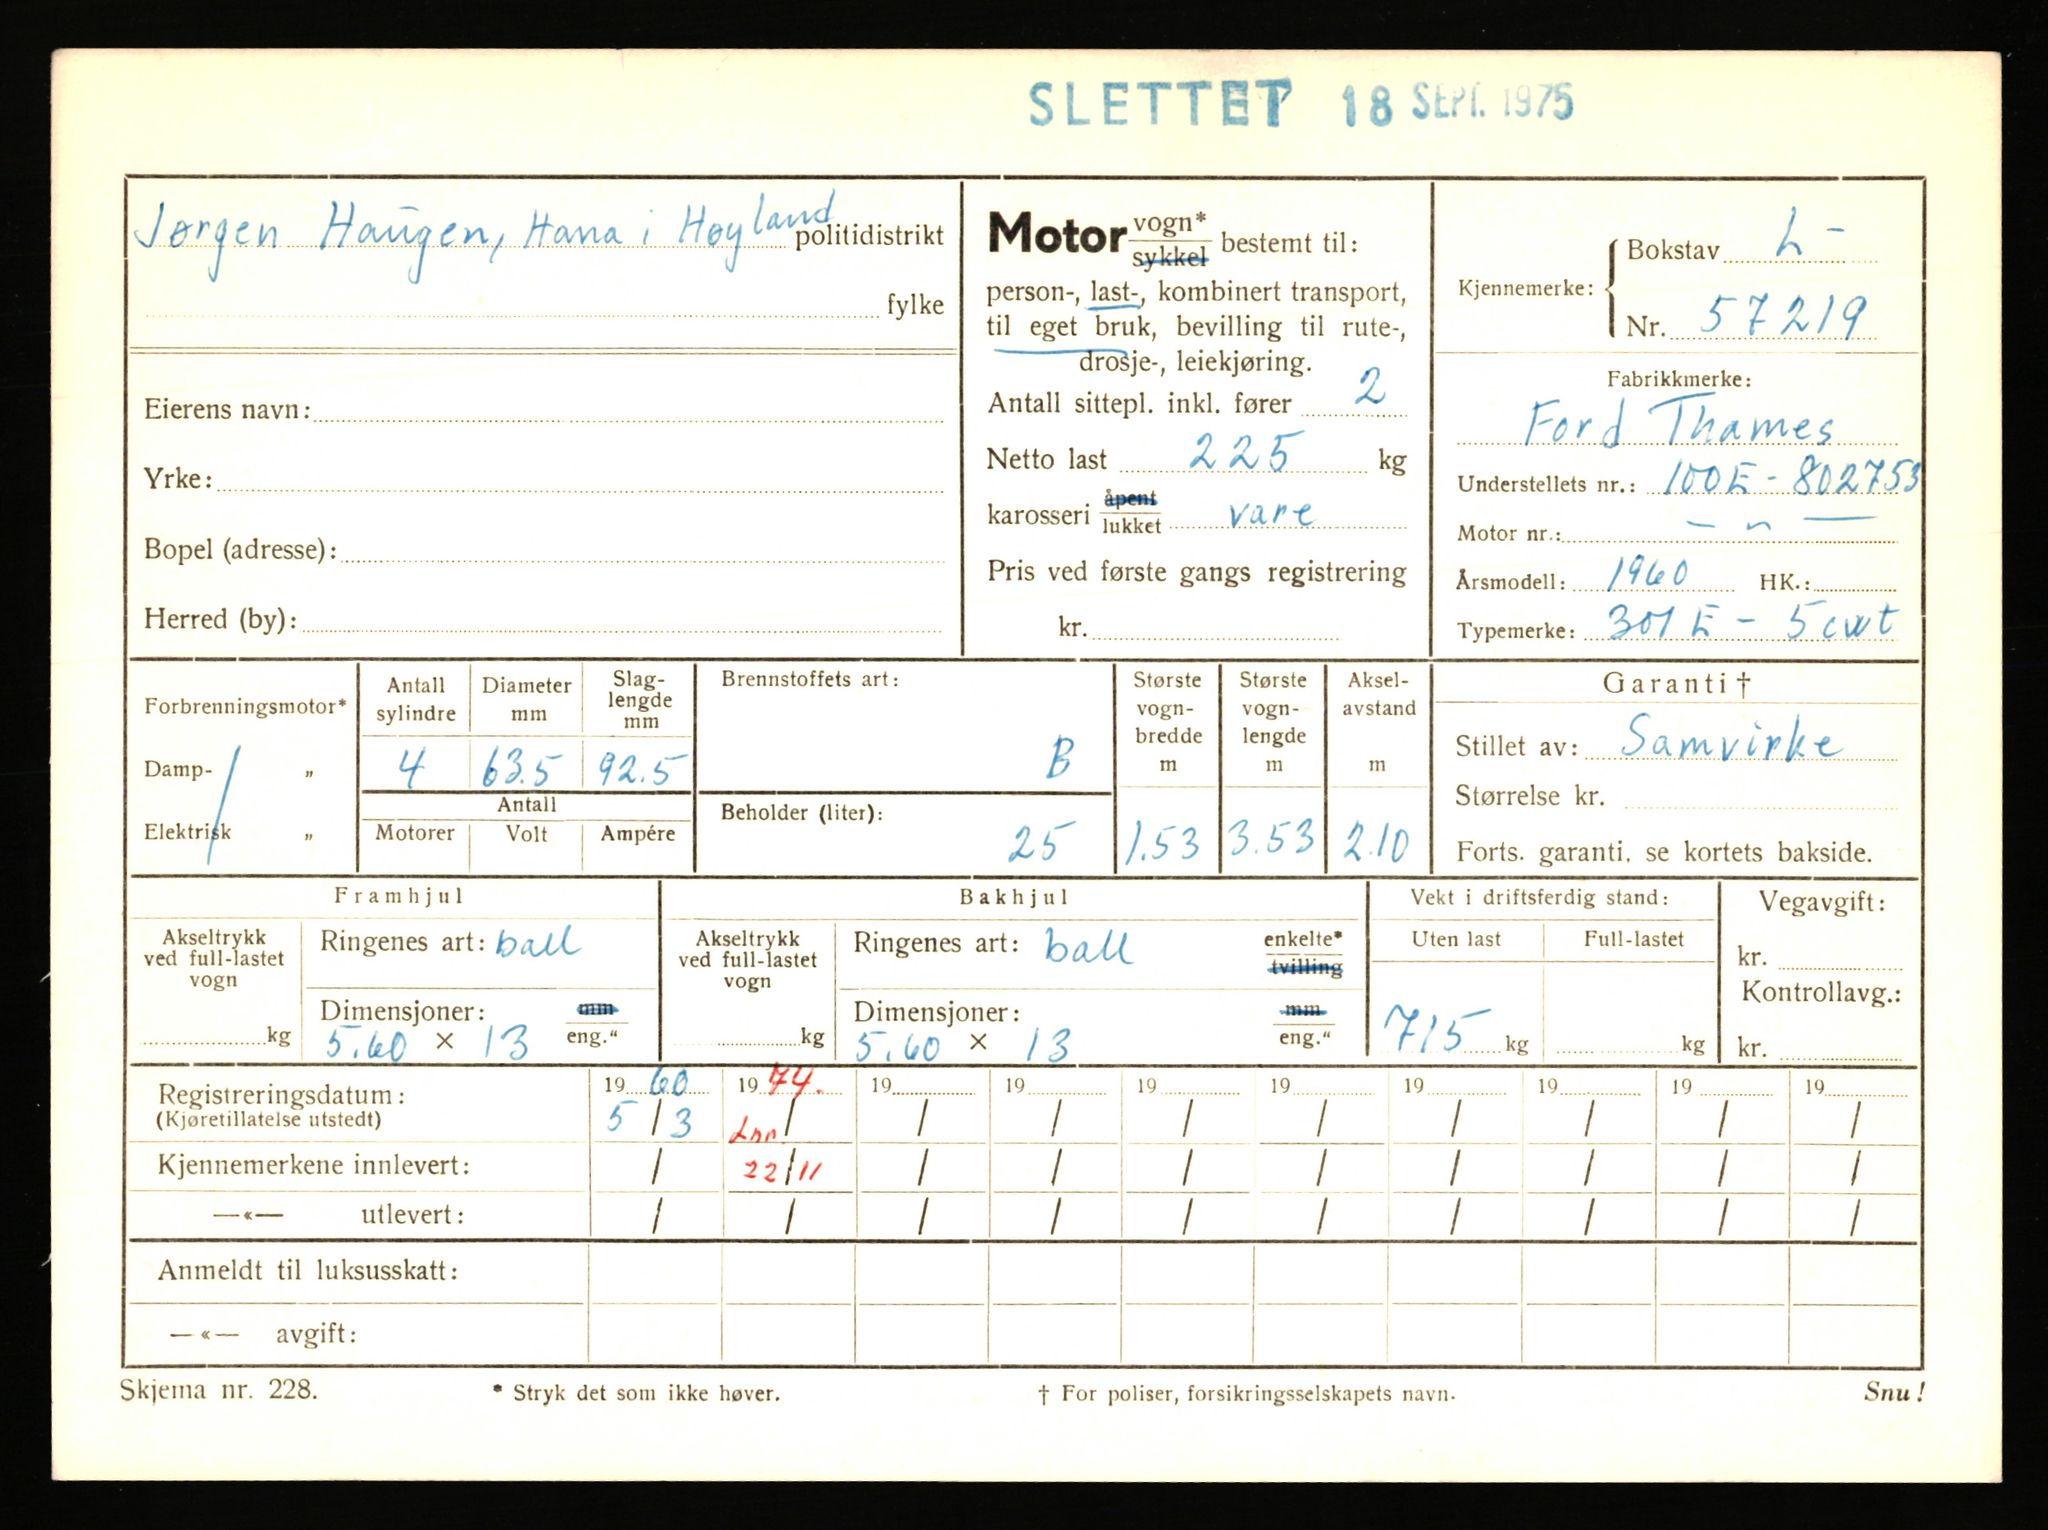 SLETTET 18 SEPT. 1975
Jørgen Haugen, Hana i Høyland politidistrikt
fylke
Eierens navn:
Yrke:
Bopel (adresse):
Herred (by):
Motor vogn* sykkel bestemt til:
person-, last-, kombinert transport,
til eget bruk, bevilling til rute-,
drosje-, leiekjøring.
Antall sittepl. inkl. fører 2
Netto last 225 kg
karosseri åpent lukket vare
Pris ved første gangs registrering
kr.
Kjennemerke: Bokstav L-
Nr. 57219
Fabrikkmerke:
Ford Thames
Understellets nr.: 100E - 802753
Motor nr.: — " —
Årsmodell: 1960 HK.:
Typemerke: 301 E - 5 cwt
Forbrenningsmotor*
Damp- "
Elektrisk "
Antall sylindre
Diameter mm
Slag-
lengde
mm
4 63.5 92.5
Antall
Motorer Volt Ampére
Brennstoffets art:
B
Beholder (liter):
25
Største
vogn-
bredde
m
1.53
Største
vogn-
lengde
m
3.53
Aksel-
avstand
m
2.10
Garanti †
Stillet av: Samvirke
Størrelse kr.
Forts. garanti, se kortets bakside.
Framhjul
Akseltrykk
ved full-lastet
vogn
kg
Ringenes art: ball
Dimensjoner: mm
5.60 × 13 eng."
Bakhjul
Akseltrykk
ved full-lastet
vogn
kg
Ringenes art: ball enkelte*
tvilling
Dimensjoner: mm
5.60 × 13 eng."
Vekt i driftsferdig stand:
Uten last Full-lastet
715 kg kg
Vegavgift:
kr.
Kontrollavg.:
kr.
Registreringsdatum: 1960 1974. 19 19 19 19 19 19 19 19
(Kjøretillatelse utstedt) 5/3 Lnn / / / / / / / / /
Kjennemerkene innlevert: / 22/11 / / / / / / / /
—«— utlevert: / / / / / / / / / /
Anmeldt til luksusskatt:
—«— avgift:
Skjema nr. 228. * Stryk det som ikke høver. † For poliser, forsikringsselskapets navn. Snu!